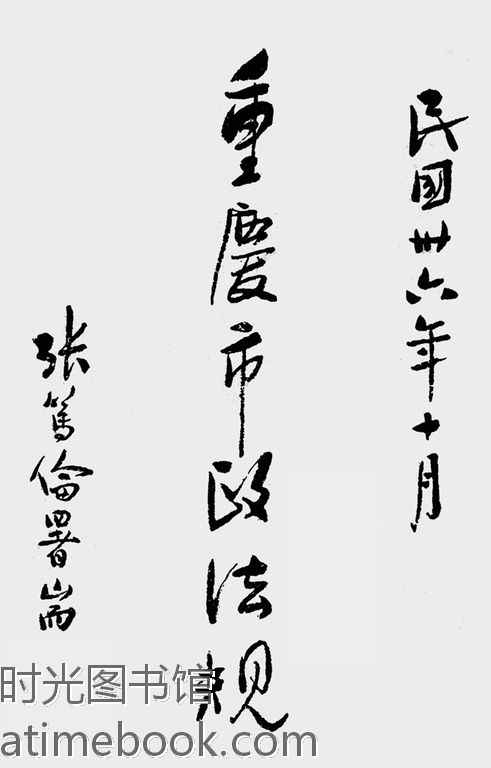 民國卅六年十月
重慶市政法規
張篤倫署耑
时光图书馆
atimebook.com